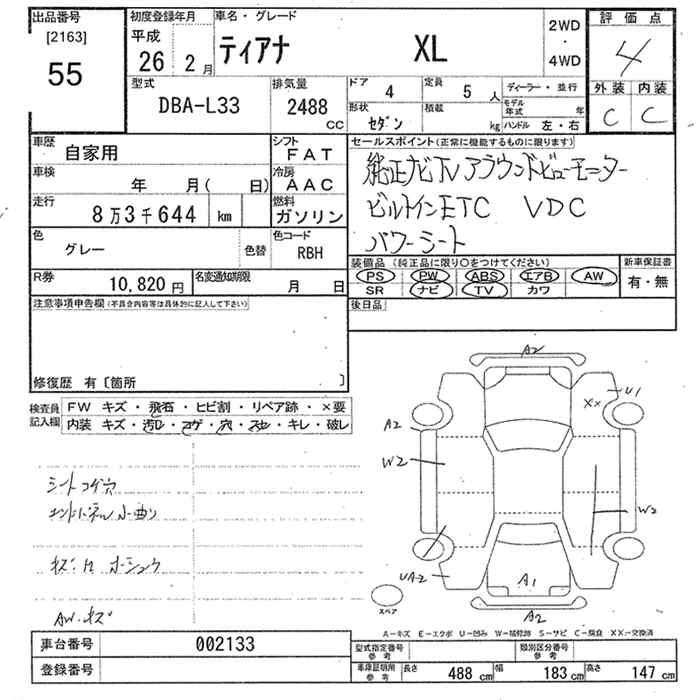 出品番号
[2163]
55
初度登録年月
平成
26 2月
車名・グレード
ティアナ XL
2WD
・
4WD
評価点
4
外装 内装
C C
型式
DBA-L33
排気量
2488
CC
ドア 4
定員 5 人
形状 セダン
積載 kg
ディーラー・並行
モデル年式 年
ハンドル 左・右
車歴
自家用
シフト
FAT
車検
年 月( 日)
冷房
AAC
走行
8万3千644 km
燃料
ガソリン
色
グレー
色替
色コード
RBH
R券
10,820円
名変通知期限
月 日
セールスポイント(正常に機能するものに限ります)
純正ナビTVアラウンドビューモニター
ビルトインETC VDC
パワーシート
装備品(純正品に限り○をつけてください)
PS PW ABS エアB AW
SR ナビ TV カワ
新車保証書
有・無
後日品
注意事項申告欄(不具合内容等は具体的に記入して下さい)
修復歴 有〔箇所 〕
検査員
記入欄
FW キズ・飛石・ヒビ割・リペア跡・×要
内装 キズ・汚レ・コゲ・穴・スレ・キレ・破レ
シートコゲ穴
AW.キズ
A2
U1
XX
A2
W2
W2
UA2
A1
A2
スペア
A-キズ E-エクボ U-凹み W-補修跡 S-サビ C-腐食 XX-交換済
車台番号
002133
登録番号
型式指定番号
参考
類別区分番号
参考
車庫証明用
参考
長さ 488 cm
幅 183 cm
高さ 147 cm